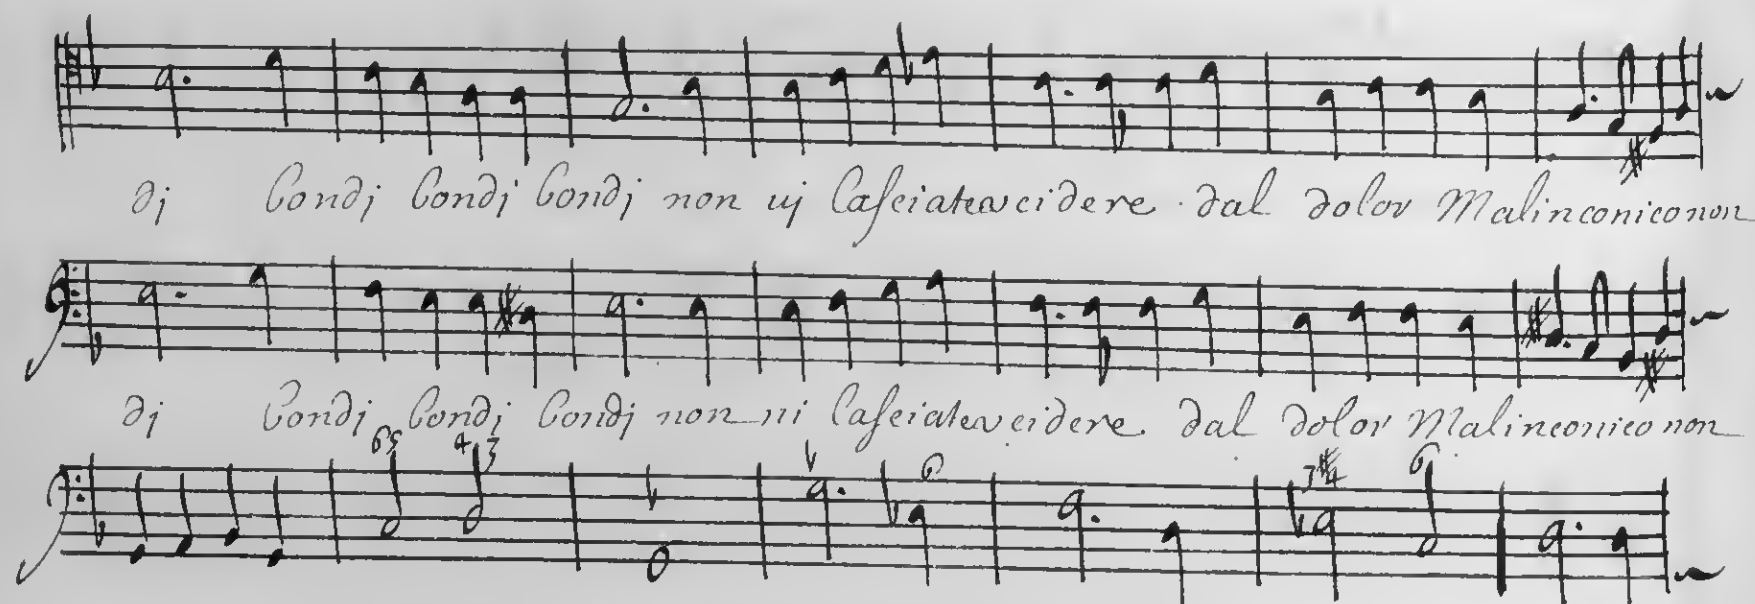 di Condi Condi Condi non vi lasciatevcidere dal dolor Malinconico non
di Condi Condi Condi non vi lasciatevcidere dal dolor Malinconico non
65 43 6 6